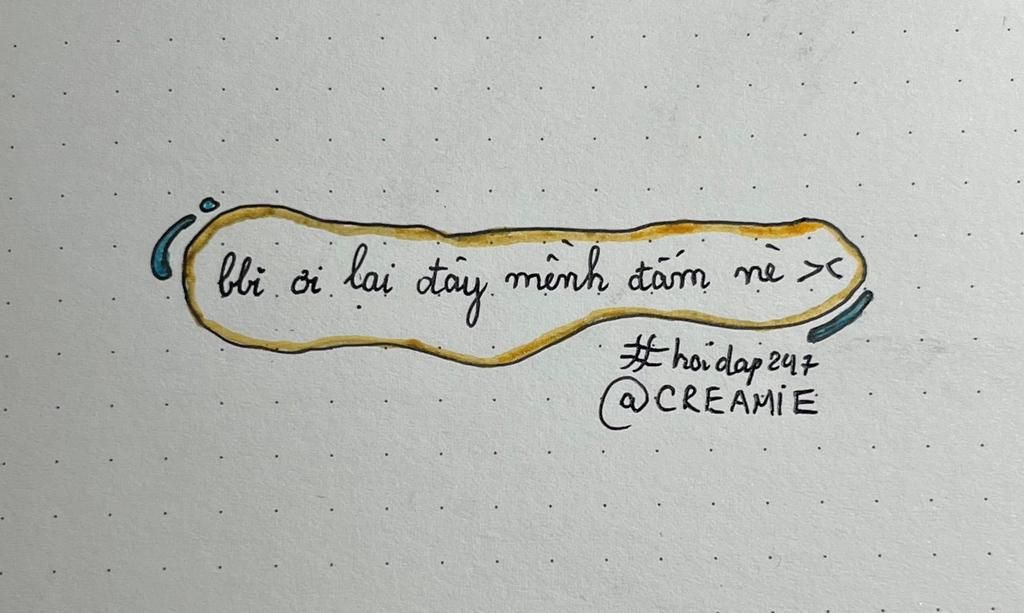 bbi ơi lại đây mềnh đấm nè ><
#hoidap247
@CREAMIE